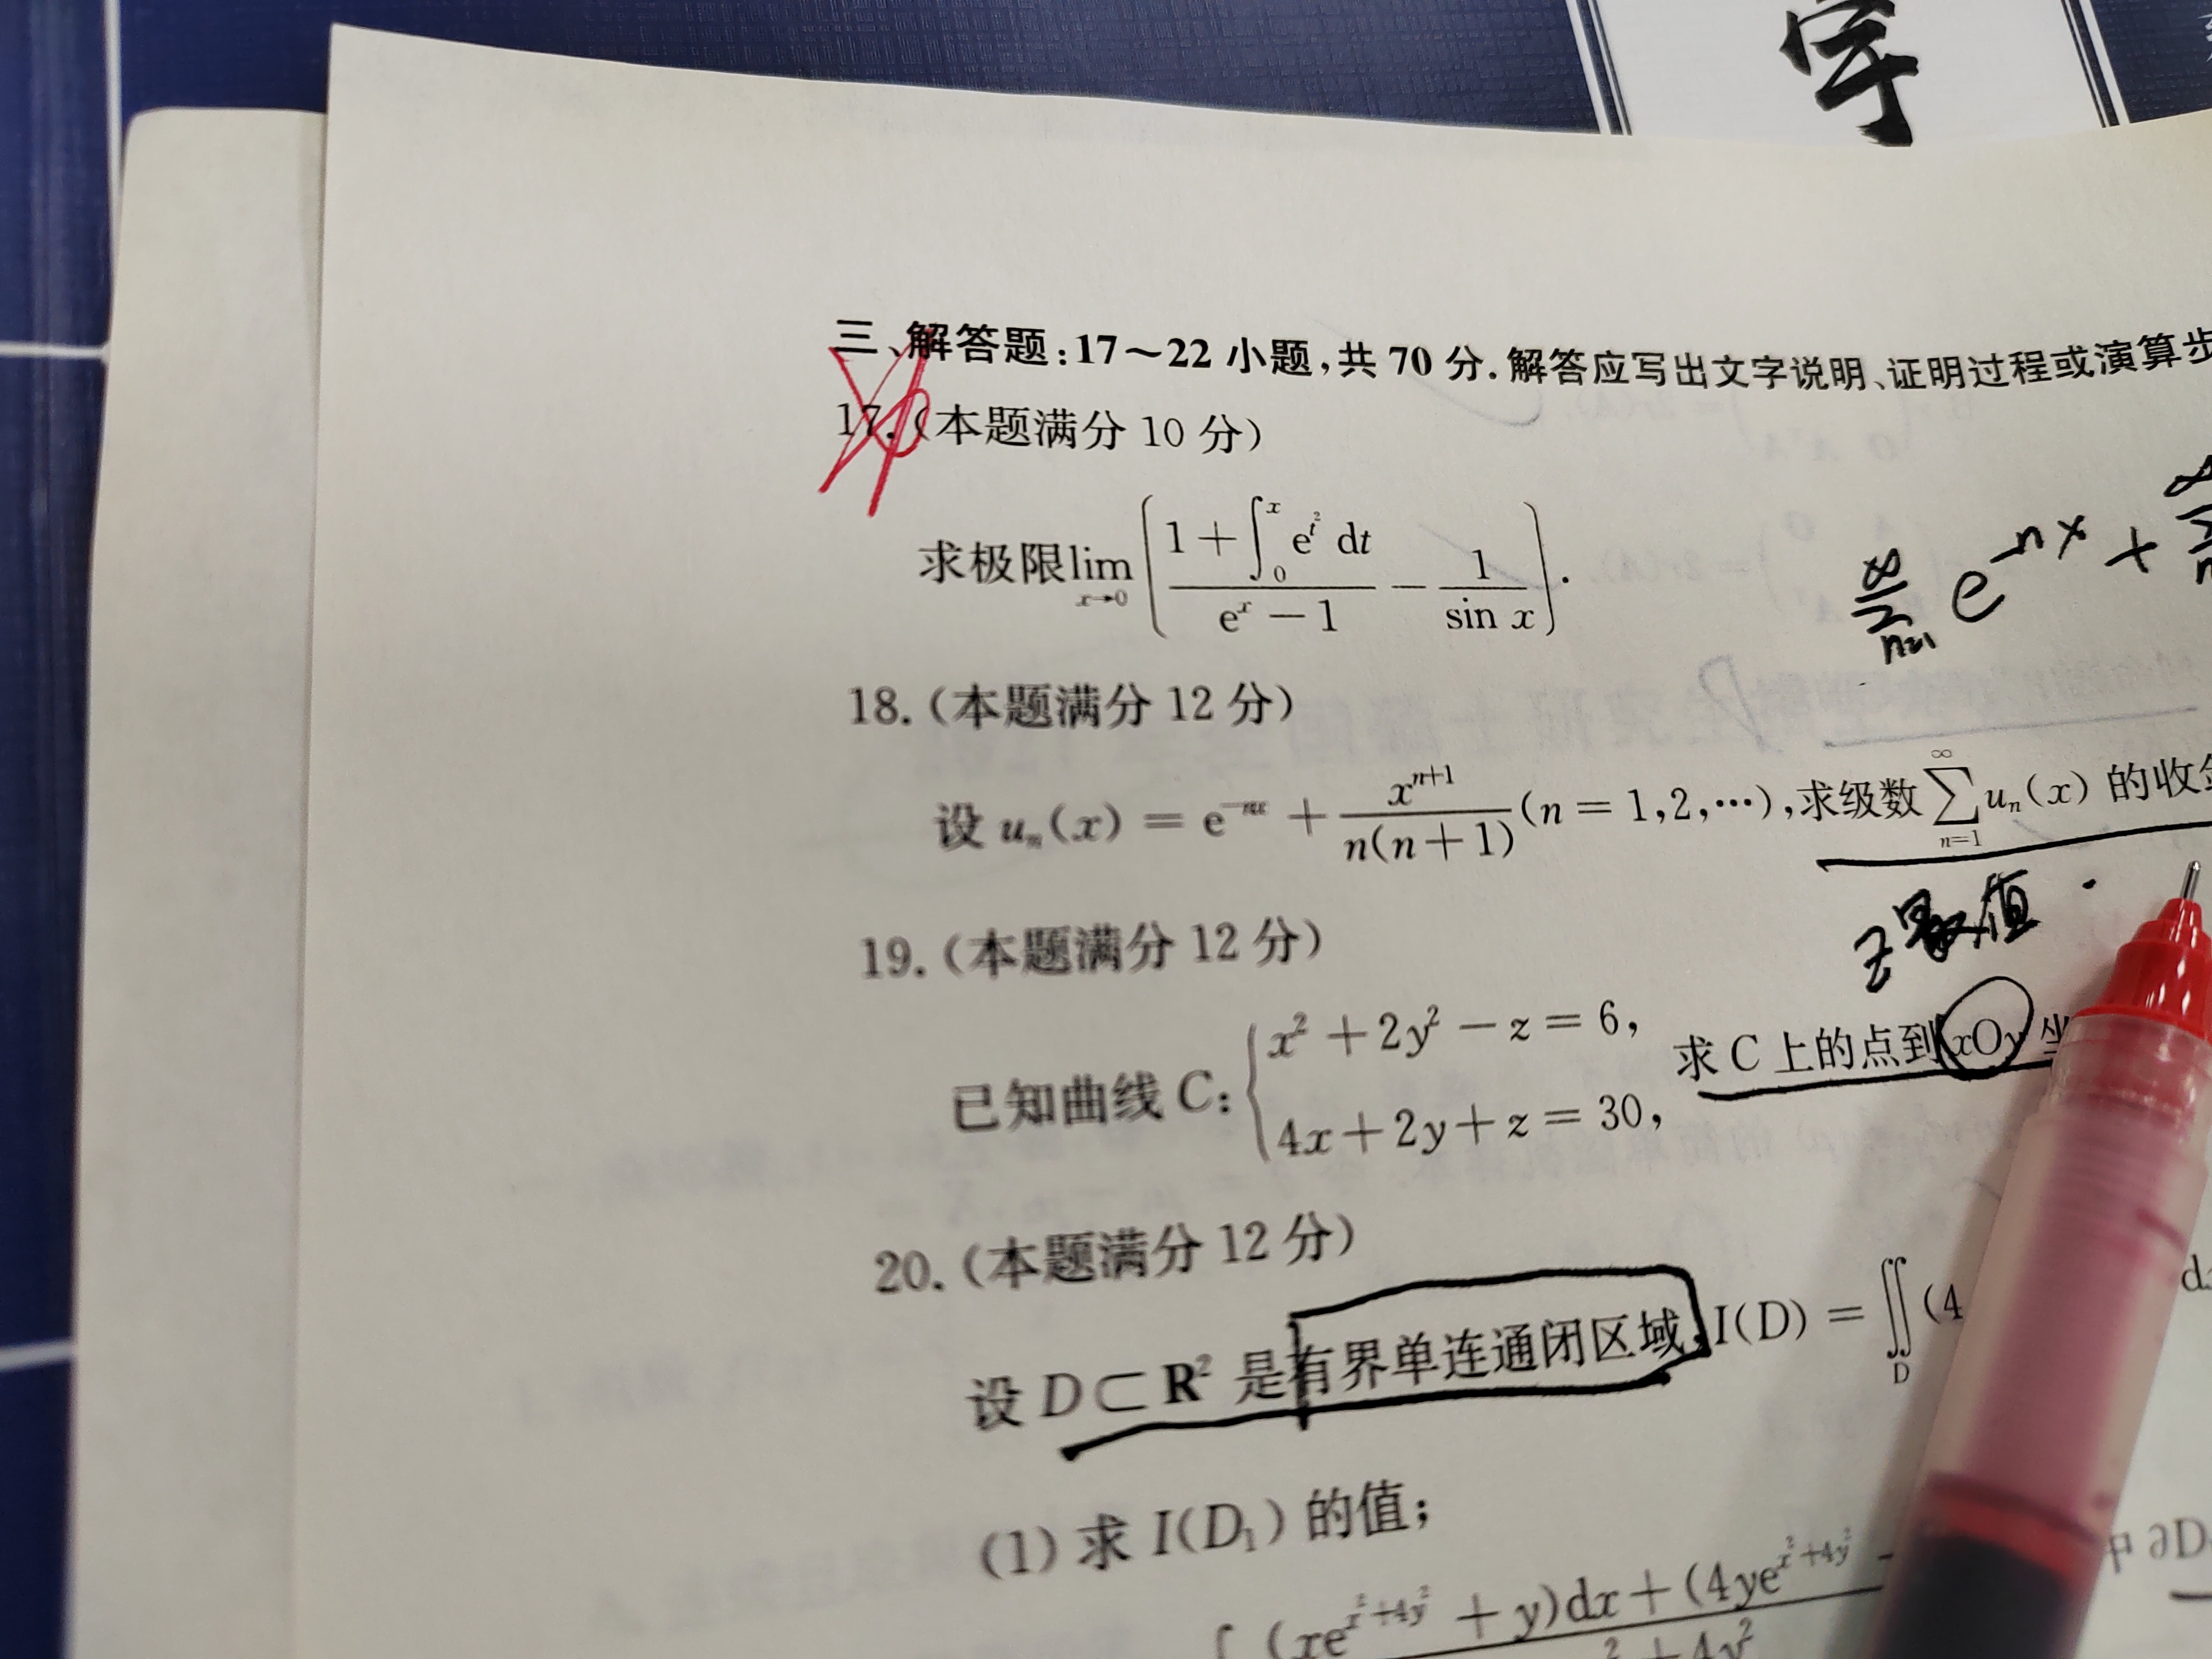 字
三、解答题:17～22 小题,共 70 分.解答应写出文字说明、证明过程或演算步
17.(本题满分 10 分)
求极限 lim_{x→0} ( (1 + ∫_0^x e^{t^2} dt)/(e^x − 1) − 1/sin x ).
∞∑n=1 e^{-nx} +
18.(本题满分 12 分)
设 u_n(x) = e^{-nx} + x^{n+1}/(n(n+1)) (n = 1,2,⋯),求级数 ∑_{n=1}^{∞} u_n(x) 的收
19.(本题满分 12 分)
已知曲线 C: { x^2 + 2y^2 − z = 6, 4x + 2y + z = 30, 求 C 上的点到 xOy 坐
20.(本题满分 12 分)
设 D ⊂ R^2 是有界单连通闭区域, I(D) = ∬_D (4
(1) 求 I(D_1) 的值;
∫ (xe^{x^2+4y^2} + y)dx + (4ye^{x^2+4y^2} −
x^2 + 4y^2
∂D